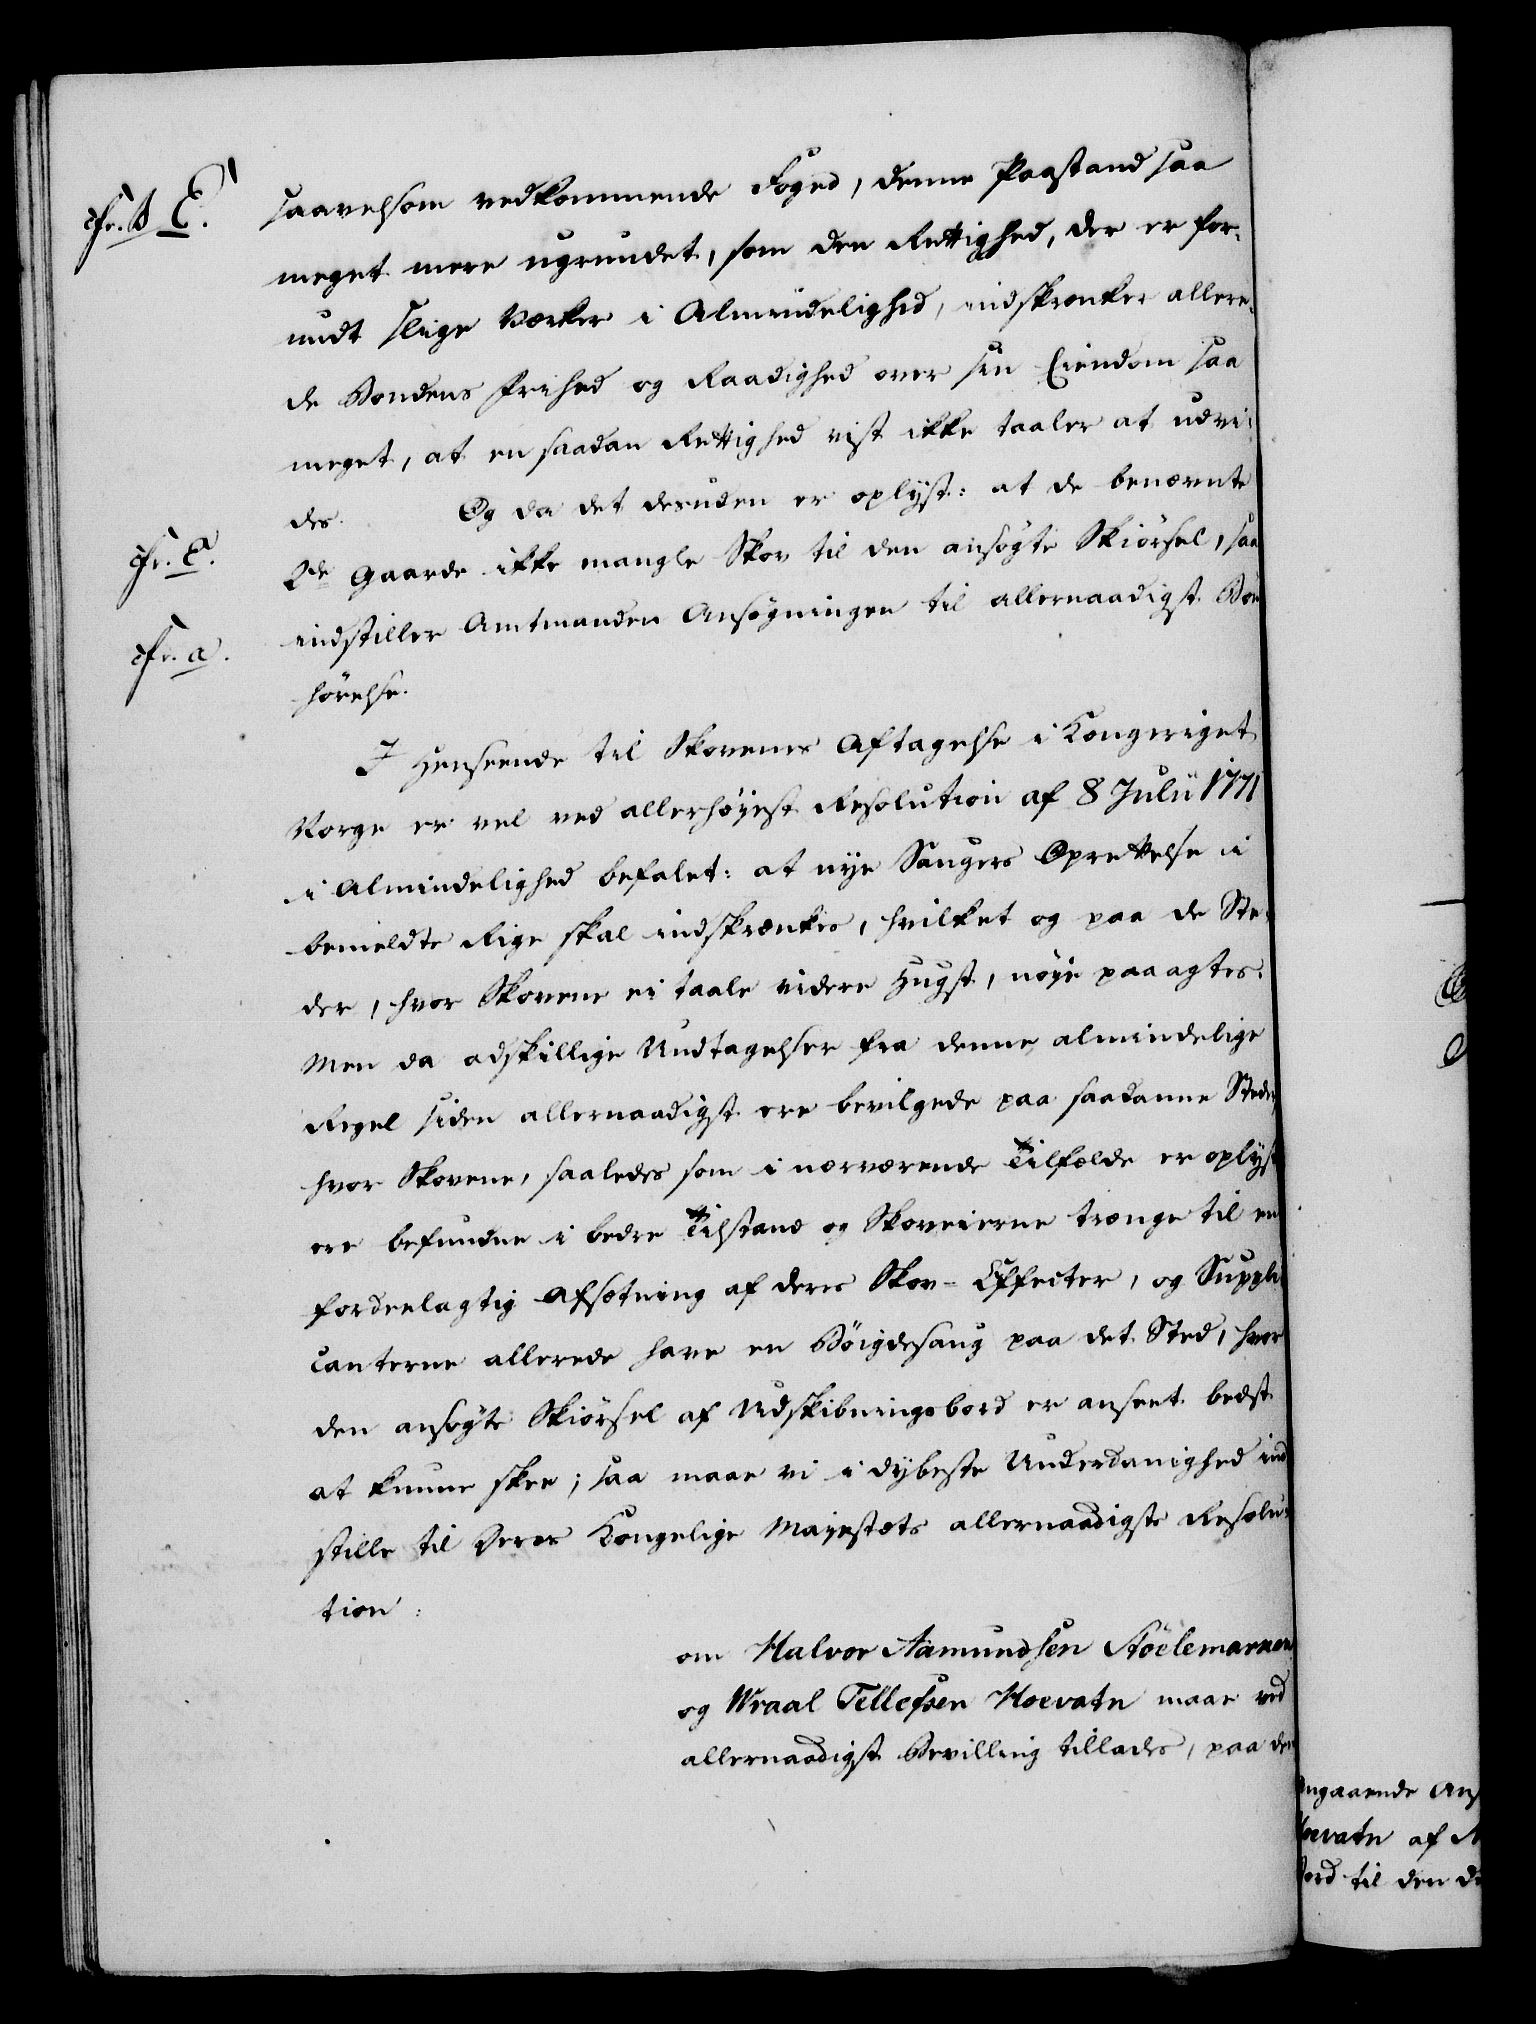 cfr. B E.
saavelsom vedkommende Foged, denne Paastand saa
meget mere ugrundet, som den Rettighed, der er for-
undt slige Værker i Almindelighed, indskrænker allere-
de Bondens Frihed og Raadighed over sin Eiendom saa
meget, at en saadan Rettighed vist ikke taaler at udvi-
des. Og da det desuden er oplyst: at de benævnte
cfr. C.
2de Gaarde ikke mangle Skov til den ansøgte Skiørsel, saa
cfr. a.
indstiller Amtmanden Ansøgningen til allernaadigst Bøn
hørelse.
I Henseende til Skovenes Aftagelse i Kongeriget
Norge er vel ved allerhøyest Resolution af 8 Julii 1771
i Almindelighed befalet: at nye Saugers Oprettelse i
bemeldte Rige skal indskrænkes, hvilket og paa de Ste-
der, hvor Skovene ei taale videre Hugst, nøye paaagtes.
Men da adskillige Undtagelser fra denne almindelige
Regel siden allernaadigst ere bevilgede paa saadanne Steder,
hvor Skovene, saaledes som i nærværende Tilfælde er oplyst
ere befundne i bedre Tilstand og Skoveierne trænge til en
fordeelagtig Afsætning af deres Skov-Effecter, og Suppli
canterne allerede have en Bøigdesaug paa det Sted, hvor
den ansøgte Skiørsel af Udskibningsbord er anseet bedst
at kunne skee; saa maae vi i dybeste Underdanighed ind
stille til Deres Kongelige Majestæts allernaadigste Resolu-
tion:
om Halvor Aamundsen Støelemarken
og Wraal Tellefsen Hoevatn maae ved
allernaadigst Bevilling tillades, paa den
ngaaende Ans
oevatn af
ord til den